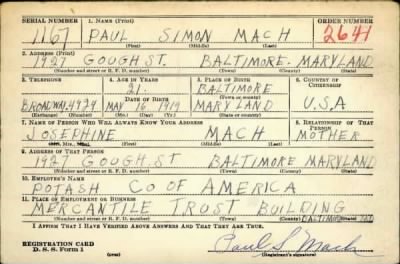 SERIAL NUMBER 1. NAME (Print) ORDER NUMBER
1167 PAUL SIMON MACH 2641
(First) (Middle) (Last)
2. ADDRESS (Print)
1927 GOUGH ST. BALTIMORE. MARYLAND
(Number and street or R. F. D. number) (Town) (County) (State)
3. TELEPHONE 4. AGE IN YEARS 5. PLACE OF BIRTH 6. COUNTRY OF CITIZENSHIP
21 BALTIMORE
DATE OF BIRTH (Town or county)
4929 MAY 16 1919 MARYLAND U.S.A
(Exchange) (Number) (Mo.) (Day) (Yr.) (State or country)
7. NAME OF PERSON WHO WILL ALWAYS KNOW YOUR ADDRESS 8. RELATIONSHIP OF THAT PERSON
JOSEPHINE MACH MOTHER
(First) (Middle) (Last)
9. ADDRESS OF THAT PERSON
1927 GOUGH.ST BALTIMORE MARYLAND
(Number and street or R. F. D. number) (Town) (County) (State)
10. EMPLOYER'S NAME
POTASH CO OF AMERICA
11. PLACE OF EMPLOYMENT OR BUSINESS
MERCANTILE TRUST BUILDING BALTIMORE MD
(Number and street or R. F. D. number) (Town) (County) (State)
I AFFIRM THAT I HAVE VERIFIED ABOVE ANSWERS AND THAT THEY ARE TRUE.
REGISTRATION CARD
D. S. S. Form 1 (over) Paul S. Mach
(Registrant's signature)